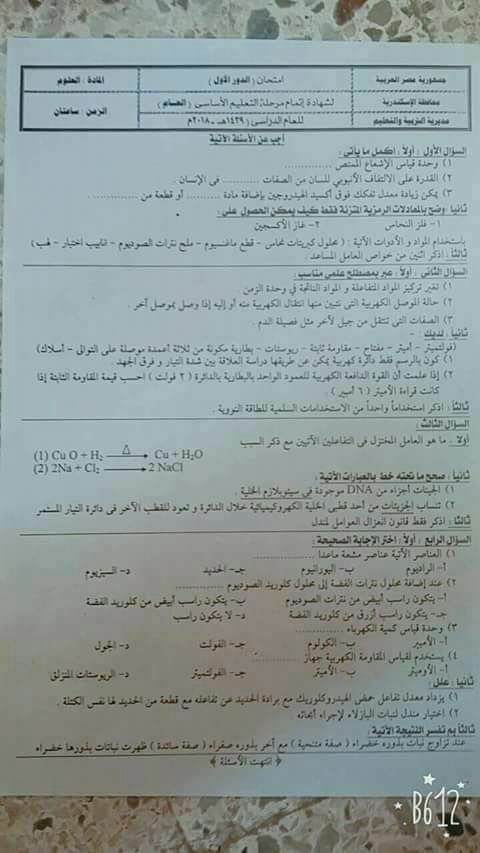 جمهورية مصر العربية
امتحان ( الدور الأول )
المادة : العلوم
محافظة الإسكندرية
لشهادة إتمام مرحلة التعليم الأساسى ( العام )
الزمن : ساعتان
مديرية التربية والتعليم
للعام الدراسى / ١٤٣٩هـ - ٢٠١٨م
أجب عن الأسئلة الآتية
السؤال الأول : أولاً : أكمل ما يأتى :
١) وحدة قياس الإشعاع الممتص ..............
٢) القدرة على الالتفاف الأنبوبى للسان من الصفات .......... فى الإنسان .
٣) يمكن زيادة معدل تفكك فوق أكسيد الهيدروجين بإضافة مادة .......... أو قطعة من ..............
ثانياً : وضح بالمعادلات الرمزية المتزنة فقط كيف يمكن الحصول على :
١- فلز النحاس ٢- غاز الأكسجين
باستخدام المواد و الأدوات الآتية : ( محلول كبريتات نحاس - قطع ماغنسيوم - ملح نترات الصوديوم - أنابيب اختبار - لهب )
ثالثاً : اذكر اثنين من خواص العامل المساعد .
السؤال الثانى : أولاً : عبر بمصطلح علمى مناسب :
١) تغير تركيز المواد المتفاعلة و المواد الناتجة في وحدة الزمن .
٢) حالة الموصل الكهربية التى تبين منها انتقال الكهربية منه أو إليه إذا وصل بموصل آخر .
٣) الصفات التى تنتقل من جيل لآخر مثل فصيلة الدم .
ثانياً : لديك :
(فولتميتر - أميتر - مفتاح - مقاومة ثابتة - ريوستات - بطارية مكونة من ثلاثة أعمدة موصلة على التوالى - أسلاك)
١) كون بالرسم فقط دائرة كهربية يمكن عن طريقها دراسة العلاقة بين شدة التيار و فرق الجهد .
٢) إذا علمت أن القوة الدافعة الكهربية للعمود الواحد بالبطارية بالدائرة ( ٢ فولت ) احسب قيمة المقاومة الثابتة إذا
كانت قراءة الأميتر ( ٦ أمبير ) .
ثالثاً : اذكر استخداماً واحداً من الاستخدامات السلمية للطاقة النووية .
السؤال الثالث :
أولا . ما هو العامل المختزل فى التفاعلين الآتيين مع ذكر السبب
(1) Cu O + H2 Δ Cu + H2O
(2) 2Na + Cl2 2 NaCl
ثانياً : صحح ما تحته خط بالعبارات الآتية :
١) الجينات أجزاء من DNA موجودة فى سيتوبلازم الخلية .
٢) تنساب الجزيئات من أحد قطبى الخلية الكهروكيميائية خلال الدائرة و تعود للقطب الآخر فى دائرة التيار المستمر
ثالثاً : اذكر فقط قانون انعزال العوامل لمندل
السؤال الرابع : أولاً : اختر الإجابة الصحيحة :
١) العناصر الآتية عناصر مشعة ماعدا ..............
أ- الراديوم ب- اليورانيوم جـ- الحديد د- السيزيوم
٢) عند إضافة محلول نترات الفضة إلى محلول كلوريد الصوديوم ..............
أ- يتكون راسب أبيض من نترات الصوديوم ب- يتكون راسب أبيض من كلوريد الفضة
جـ- يتكون راسب أزرق من كلوريد الفضة د- لا يتكون راسب
٣) وحدة قياس كمية الكهرباء ..............
أ- الأمبير ب- الكولوم جـ- الفولت د- الجول
٤) يستخدم لقياس المقاومة الكهربية جهاز ..............
أ- الأوميتر ب- الأميتر جـ- الفولتميتر د- الريوستات المنزلق
ثانياً : علل :
١) يزداد معدل تفاعل حمض الهيدروكلوريك مع برادة الحديد عن تفاعله مع قطعة من الحديد لها نفس الكتلة .
٢) اختيار مندل لنبات البازلاء لإجراء أبحاثه
ثالثاً بم تفسر النتيجة الآتية :
عند تزاوج نبات بذوره خضراء ( صفة متنحية ) مع آخر بذوره صفراء ( صفة سائدة ) ظهرت نباتات بذورها خضراء
﴿ انتهت الأسئلة ﴾
B612